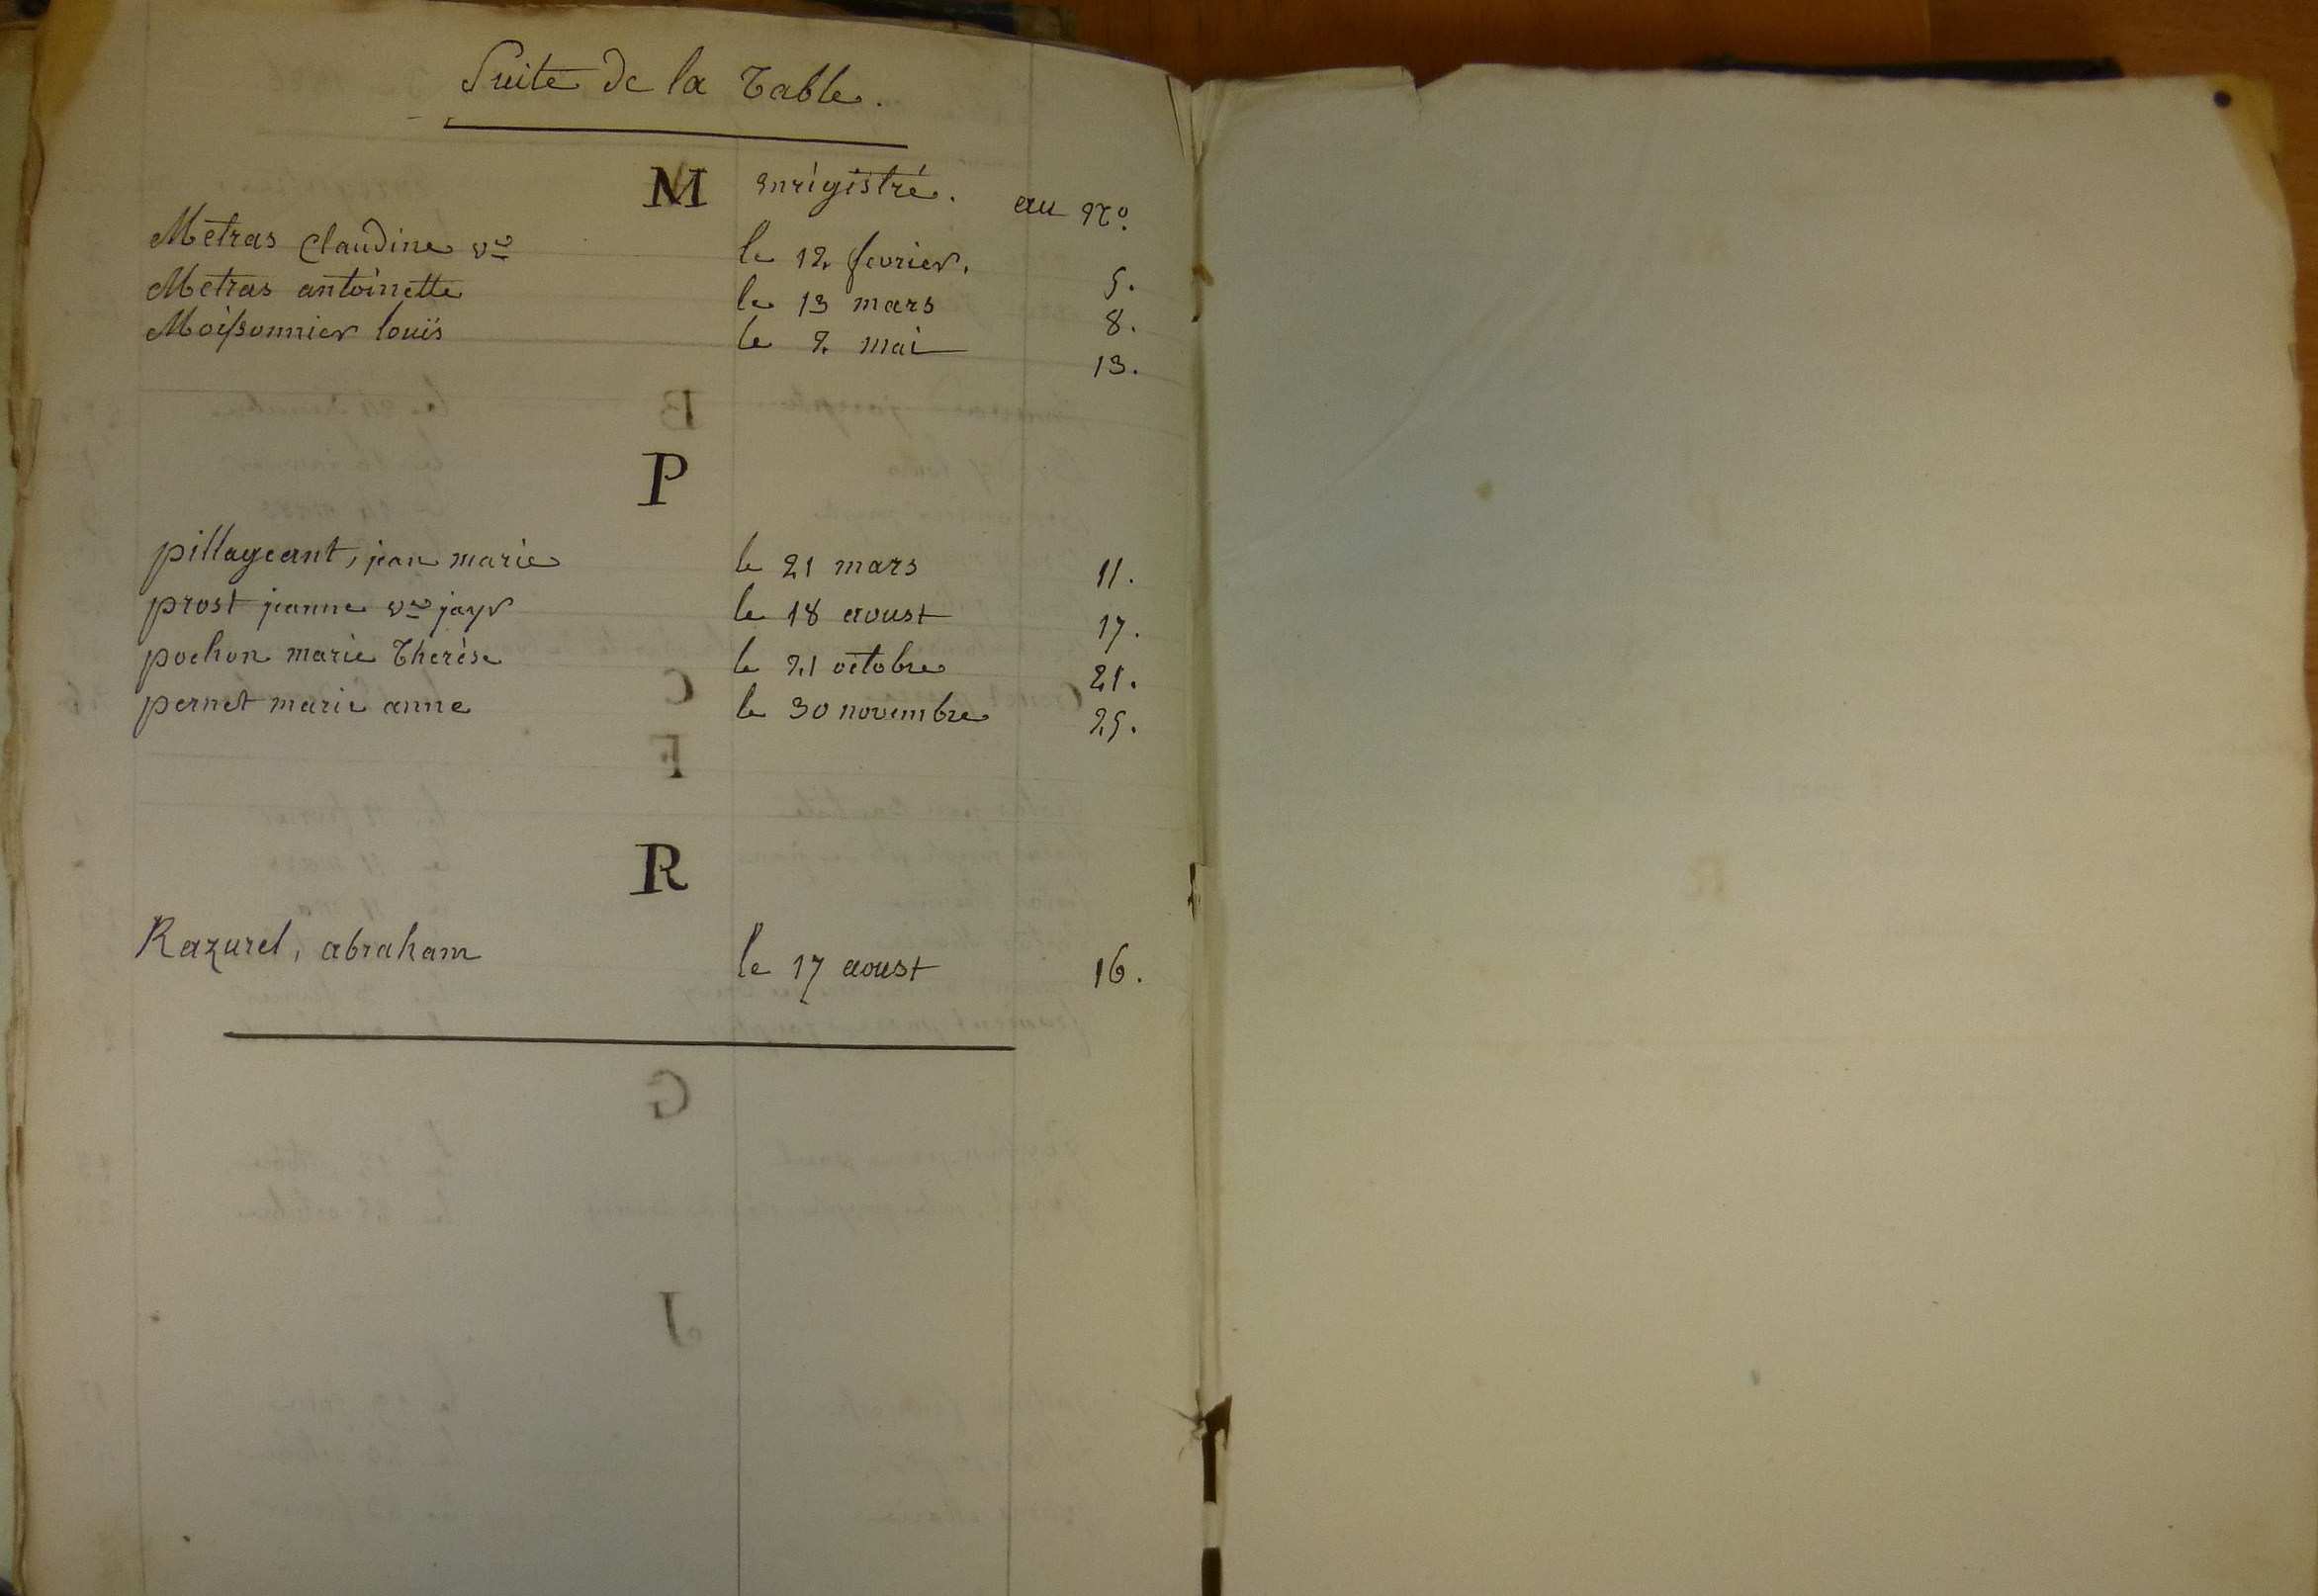 Suite de la Table.
M enrigistré. au No.
Metras Claudine ve le 12 fevrier. 5.
Metras antoinette le 13 mars 8.
Moissonnier louïs le 2 mai 13.
P
pillageant, jean marie le 21 mars 11.
prost jeanne ve jayr le 18 aoust 17.
pochon marie Therèse le 21 octobre 21.
pernet marie anne le 30 novembre 25.
R
Razurel, abraham le 17 aoust 16.